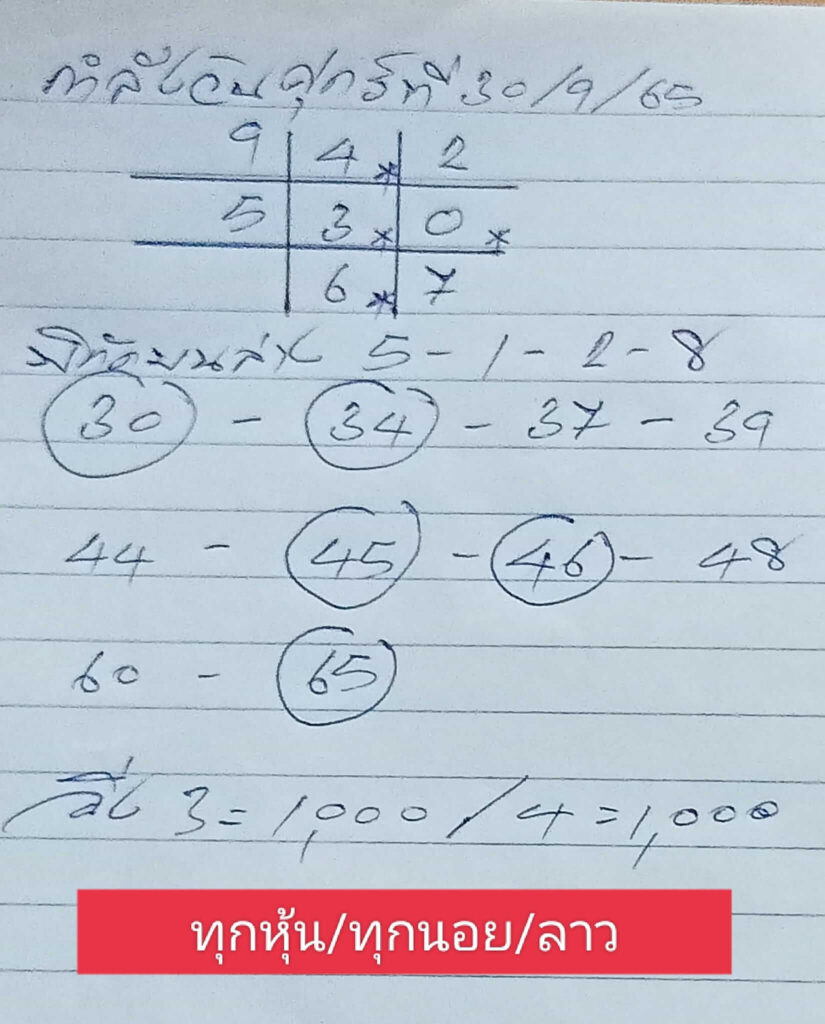 กำลังวันศุกร์ที่ 30/9/65
9 4* 2
5 3* 0*
6* 7
พิกัดบนล่าง 5-1-2-8
30 - 34 - 37 - 39
44 - 45 - 46 - 48
60 - 65
3=1,000/4=1,000
ทุกหุ้น/ทุกนอย/ลาว